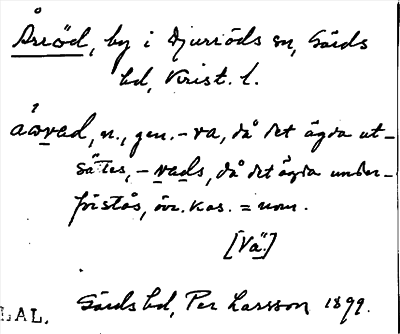 Årröd, by i Djurröds sn, Gärds
hd, Krist. l.
åɷrad, n., gen. -ra, då det ägda ut-
sättes, -rads, då det ägda under-
förstås, övr. kas. = nom.
[Vä.]
LAL. Gärds hd, Per Larsson 1899.